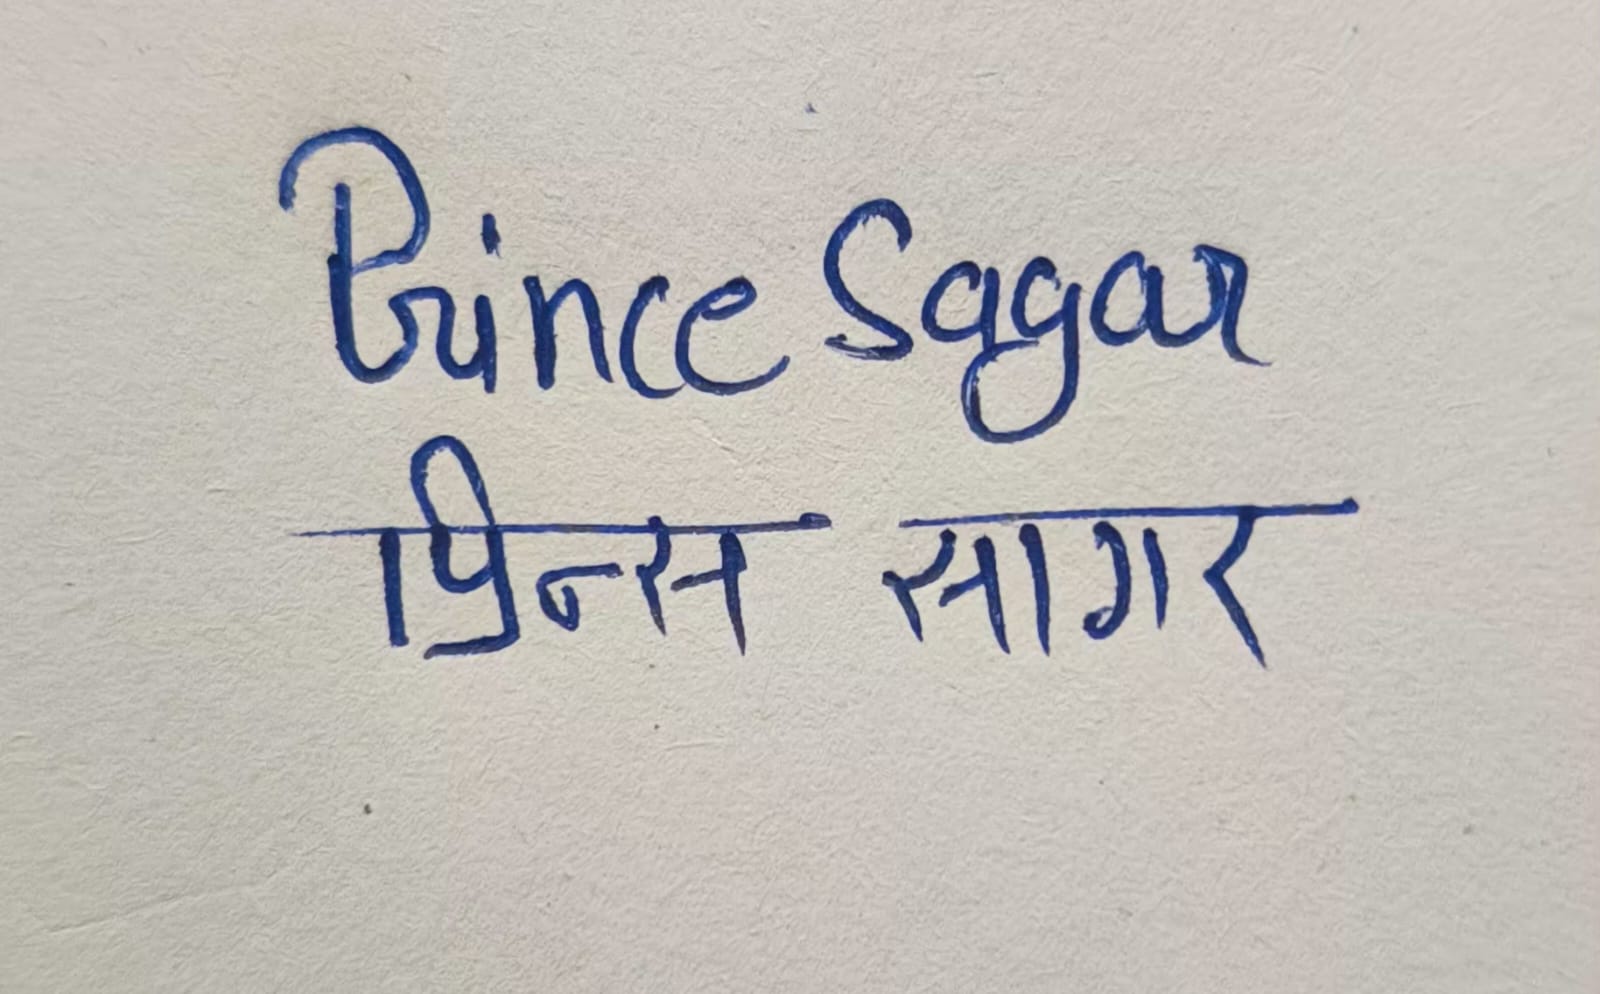 Prince Sagar
प्रिन्स सागर